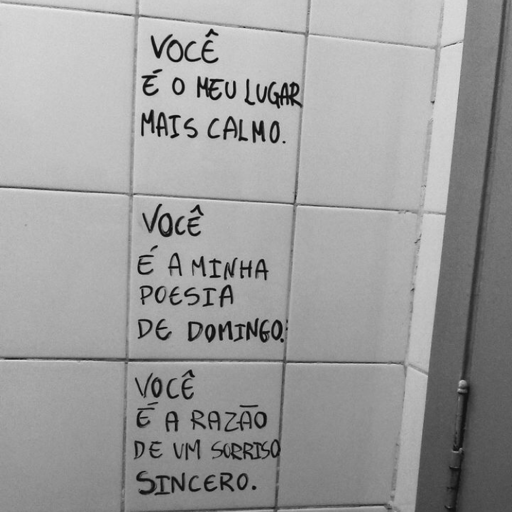 VOCÊ
É O MEU LUGAR
MAIS CALMO.
VOCÊ
É A MINHA
POESIA
DE DOMINGO.
VOCÊ
É A RAZÃO
DE UM SORRISO
SINCERO.